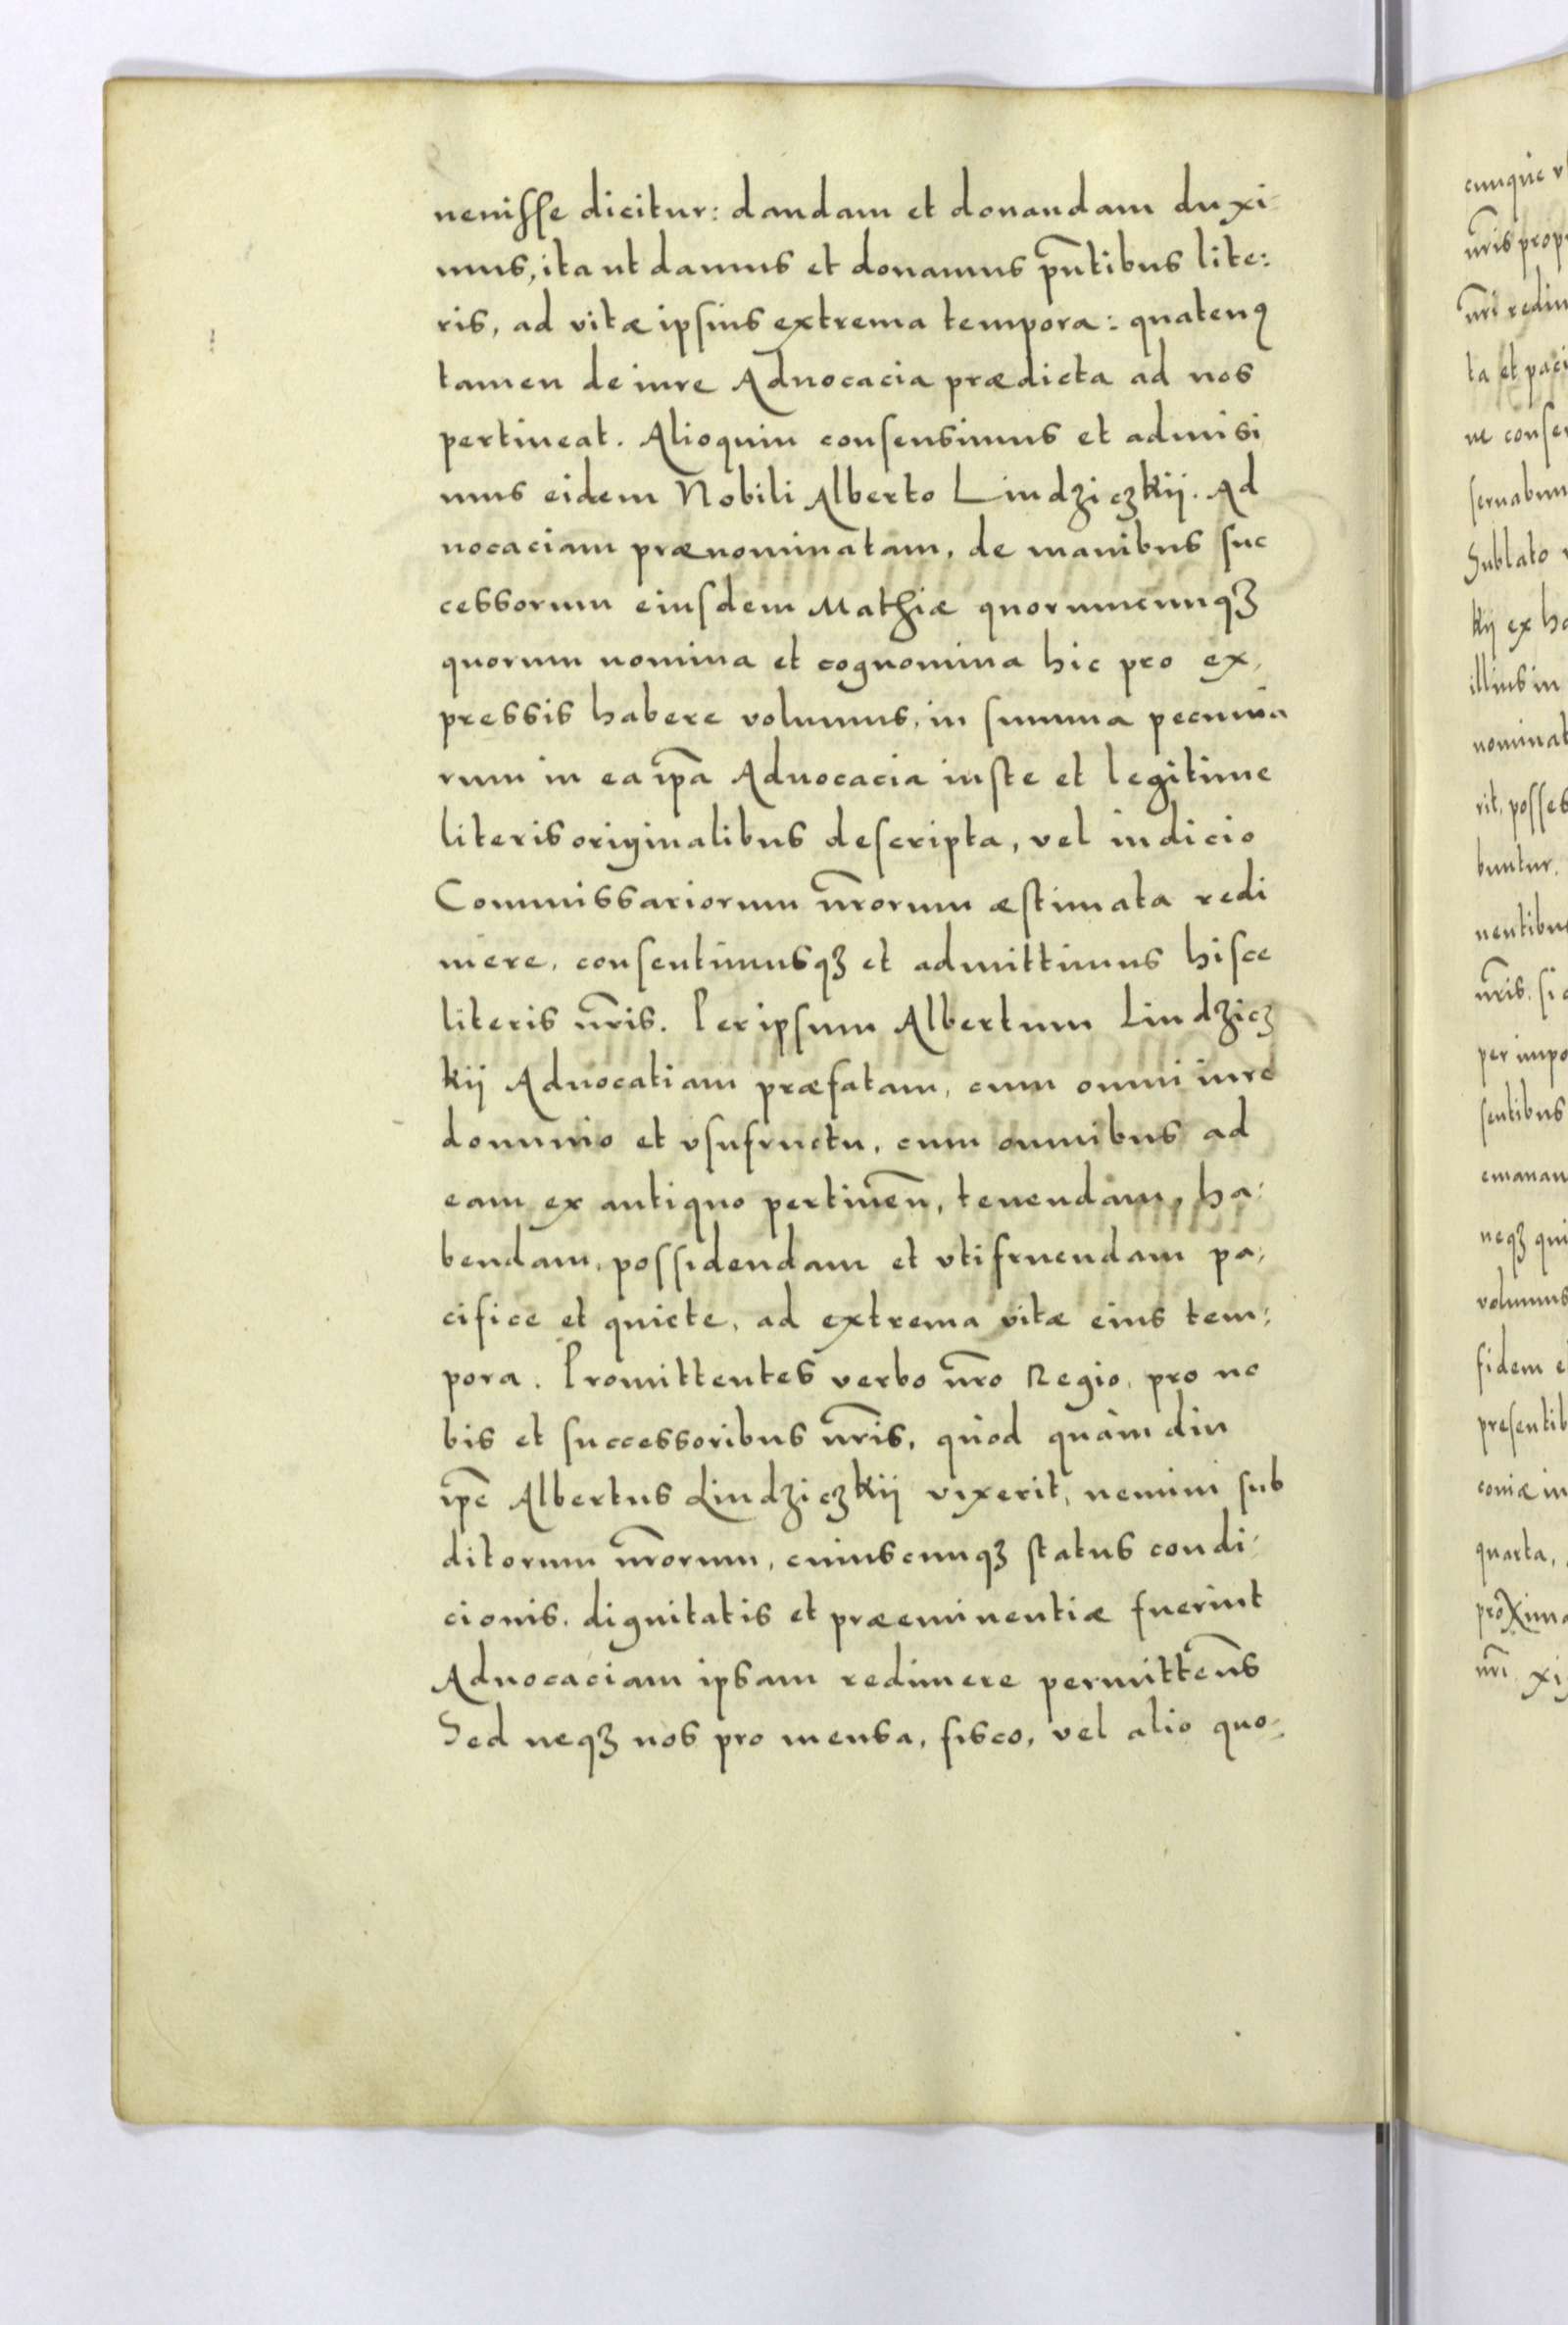 uenisse dicitur: dandam et donandam duxi-
mus, ita ut damus et donamus pñtibus lite:
ris, ad vitæ ipsius extrema tempora: quatenꝰ
tamen de iure Aduocacia prædicta ad nos
pertineat. Alioquin consensimus et admisi
mus eidem Nobili Alberto Lindziczkij. Ad
uocaciam prænominatam, de manibus suc
cessorum eiusdem Mathiæ quorumcunqꝫ
quorum nomina et cognomina hic pro ex,
pressis habere volumus, in summa pecunia
rum in ea ip̃a Aduocacia iuste et legitime
literis originalibus descripta, vel iudicio
Commissariorum nr̃orum æstimata redi
mere, consentimusqꝫ et admittimus hisce
literis nr̃is. Per ipsum Albertum Lindzicz
kij Aduocatiam præfatam, cum omni iure
dominio et vsufructu, cum omnibus ad
eam ex antiquo pertineñ, tenendam, ha:
bendam, possidendam et vtifruendam pa,
cifice et quiete, ad extrema vitæ eius tem:
pora. Promittentes verbo nr̃o Regio, pro no
bis et successoribus nr̃is, quòd quàm diu
ip̃e Albertus Lindziczkij vixerit, nemini sub
ditorum nr̃orum, cuiuscunqꝫ status condi-
cionis, dignitatis et præeminentiæ fuerint
Aduocaciam ipsam redimere permitteñs
Sed neqꝫ nos pro mensa, fisco, vel alio quo-
cunque
nr̃is prop
nr̃i redim
ta et paci
ne conse
seruabim
Sublato
kij ex ha
illius in
nominat
rit, posses
buntur.
nentibus
nr̃is, si
per impo
sentibus
emanan
neqꝫ qui
volumus
fidem e
presentib
coniæ in
quarta,
proxima
nr̃i xi